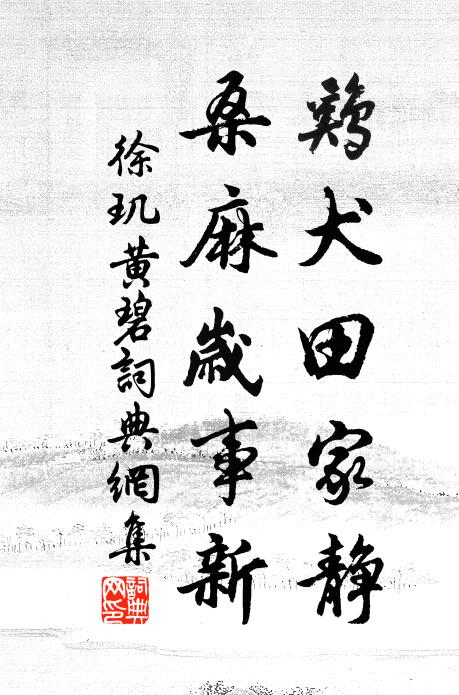 鷄犬田家静
桑麻歲事新
徐玑黄碧詞典網集
詞典网印